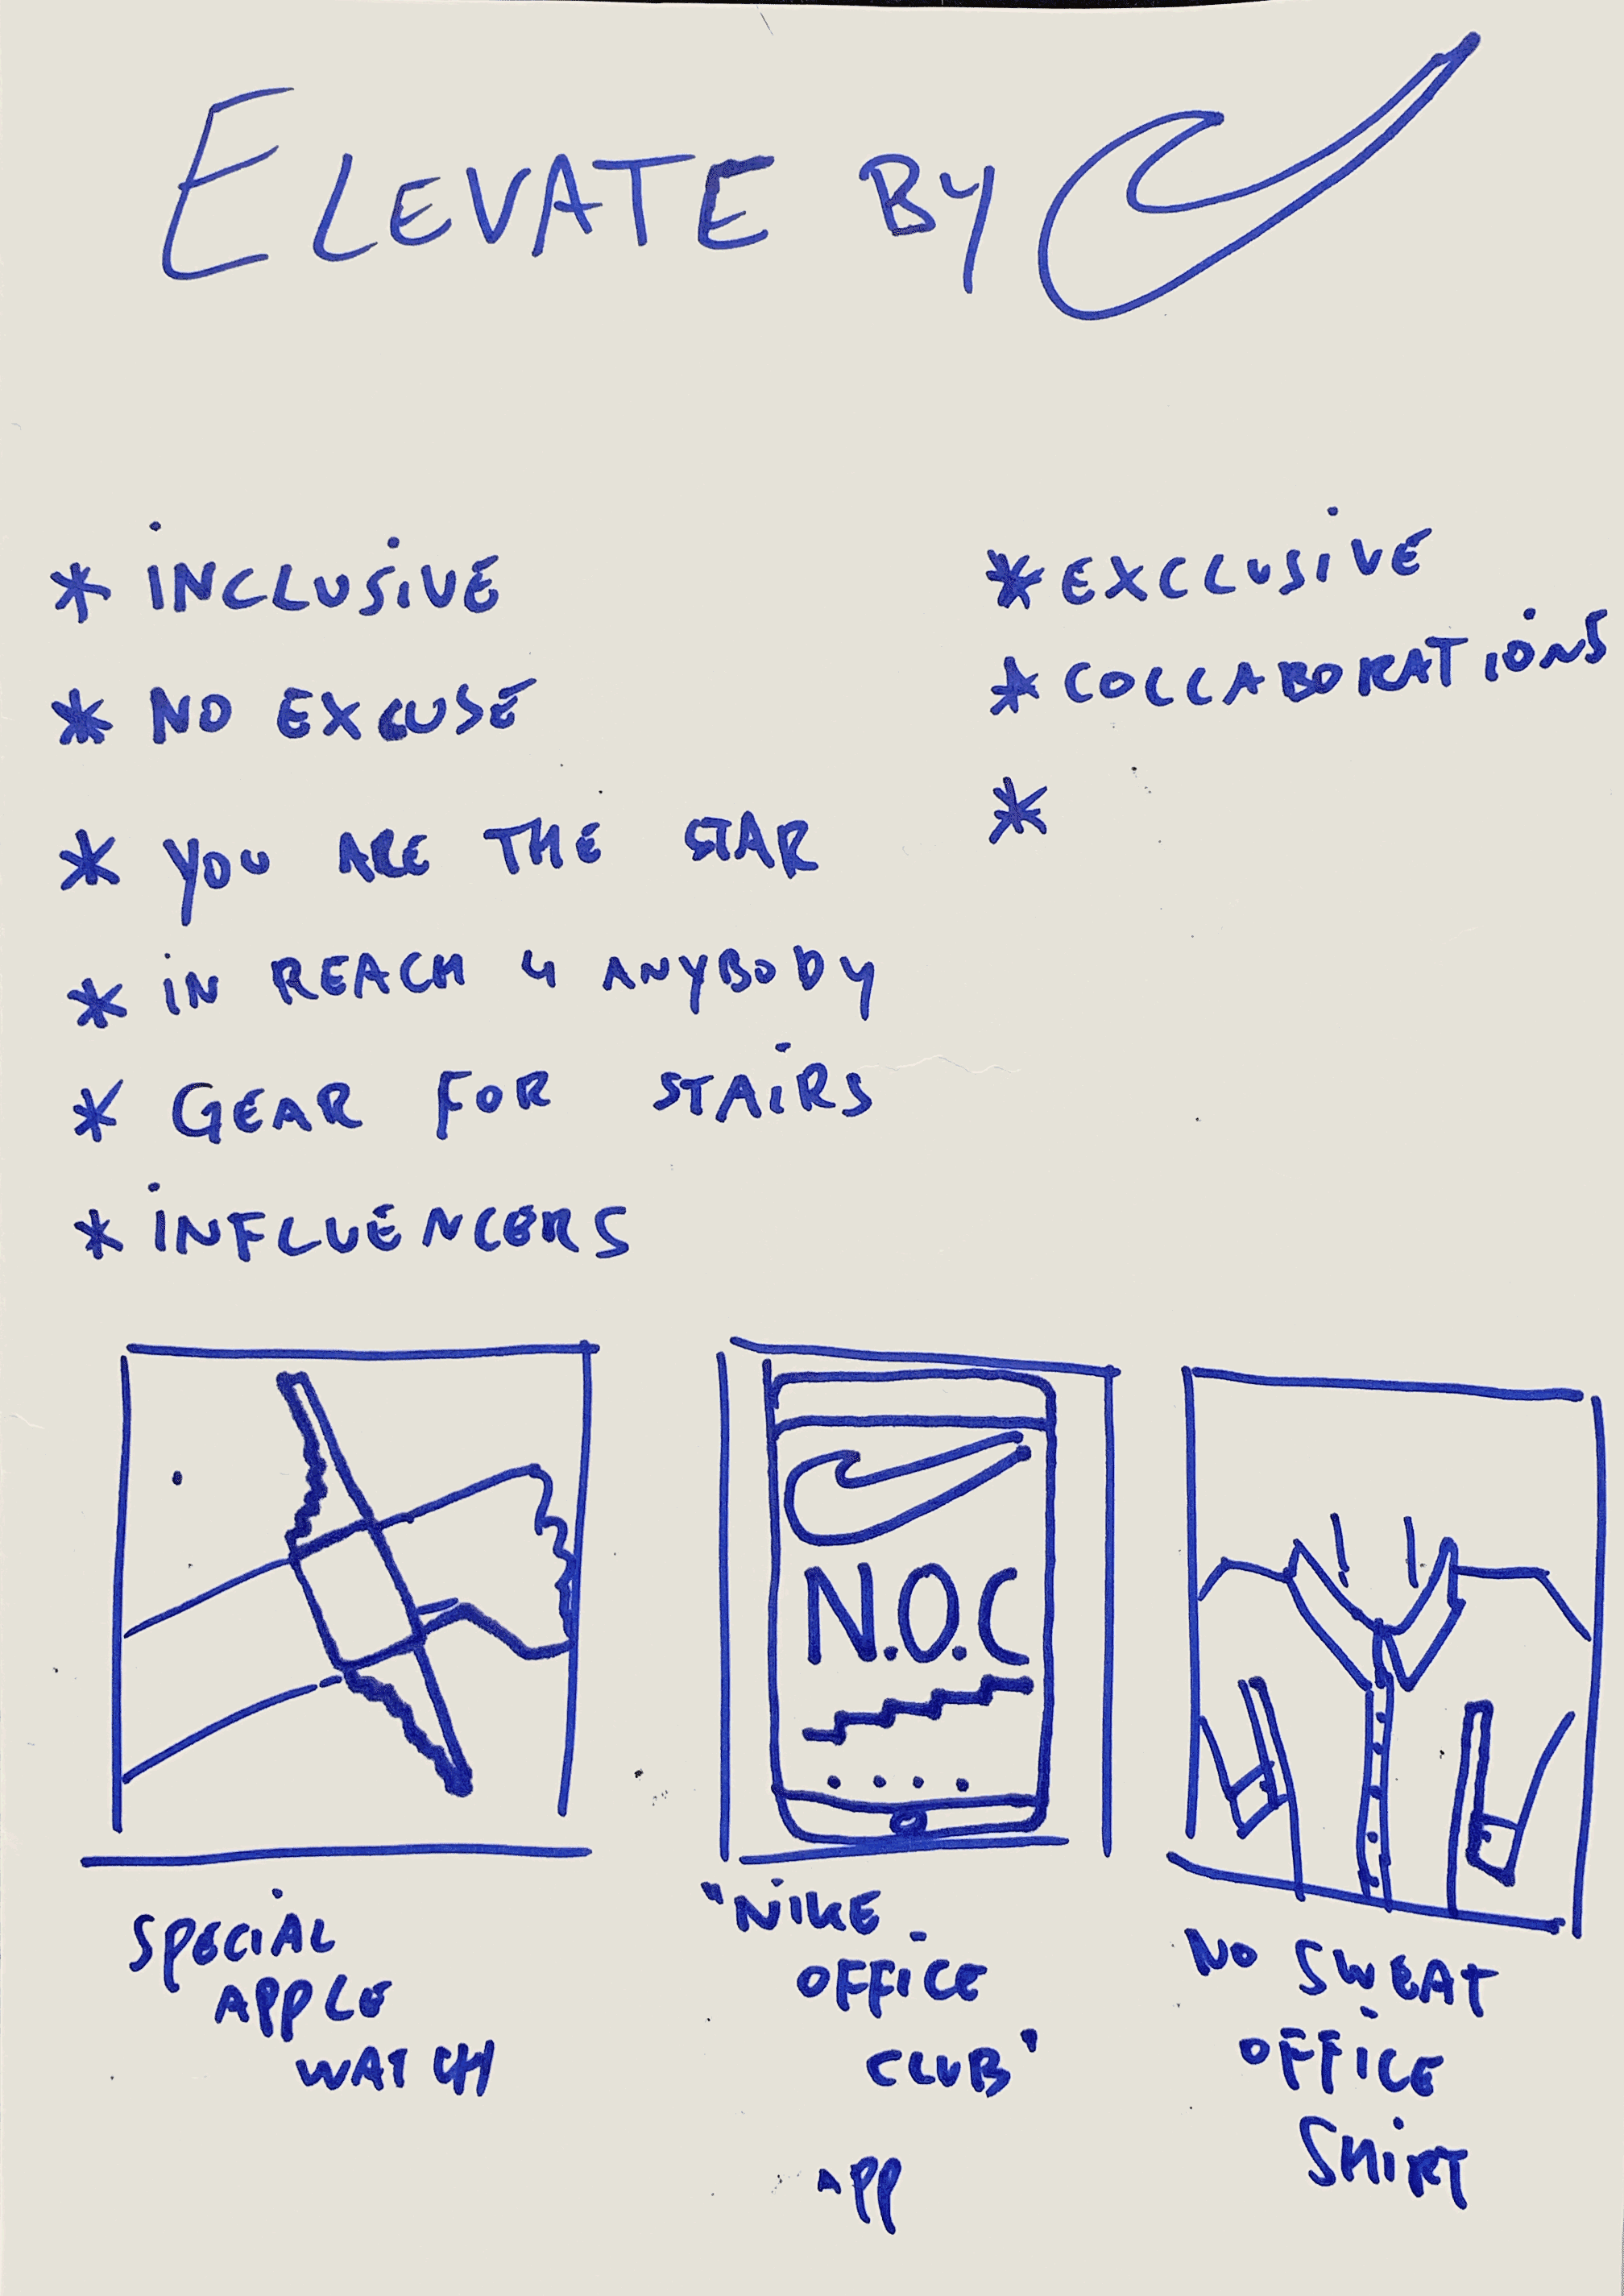 ELEVATE BY
* INCLUSIVE
* NO EXCUSE
* YOU ARE THE STAR
* IN REACH 4 ANYBODY
* GEAR FOR STAIRS
* INFLUENCERS
* EXCLUSIVE
* COLLABORATIONS
*
N.O.C
SPECIAL
APPLE
WATCH
"NIKE
OFFICE
CLUB"
APP
NO SWEAT
OFFICE
SHIRT